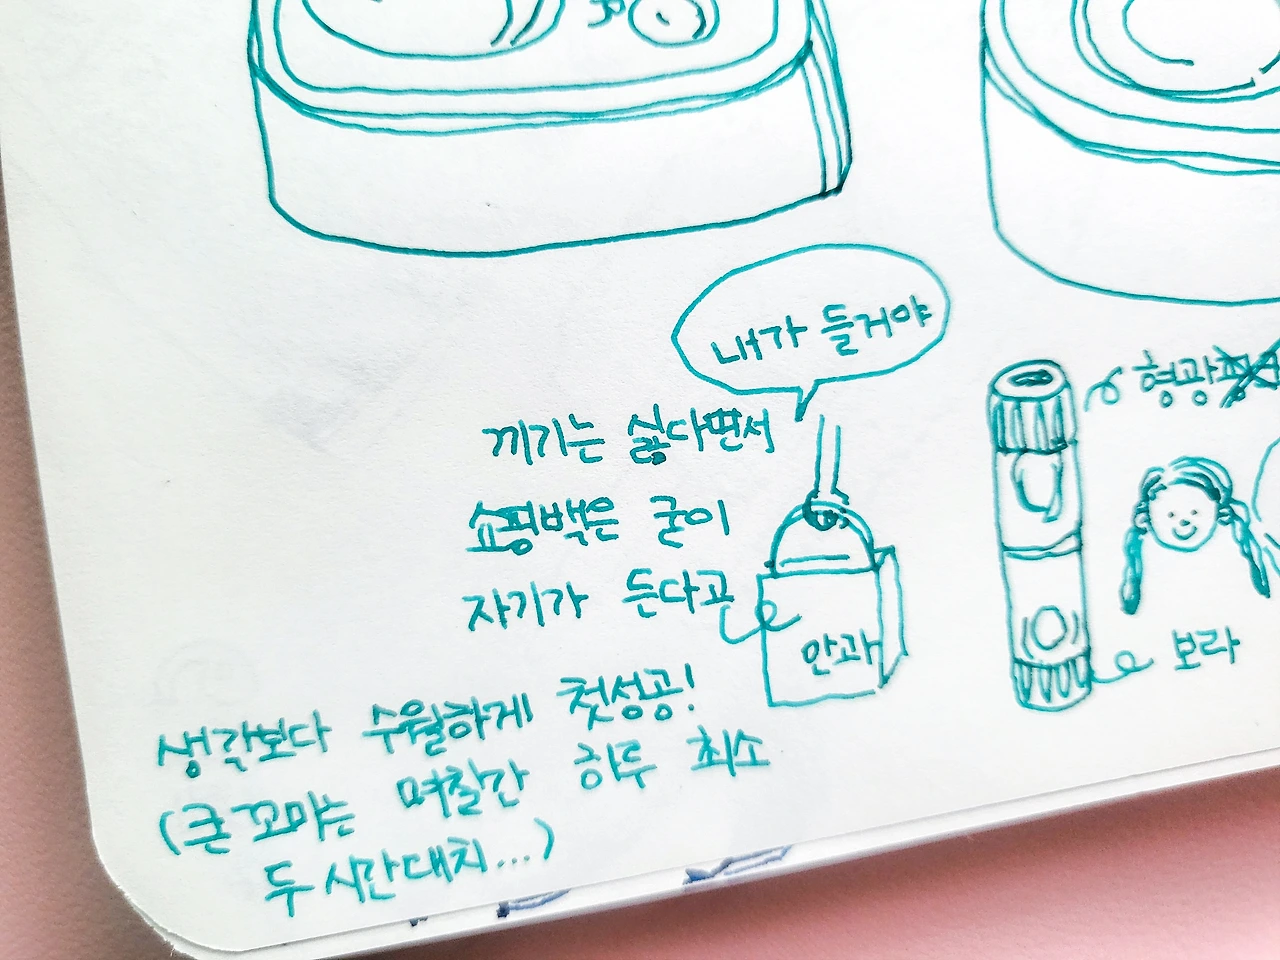 내가 들거야
끼기는 싫다면서
쇼핑백은 굳이
자기가 든다고
안과
형광
보라
생각보다 수월하게 첫성공!
(큰꼬마는 며칠간 하루 최소
두시간대치...)